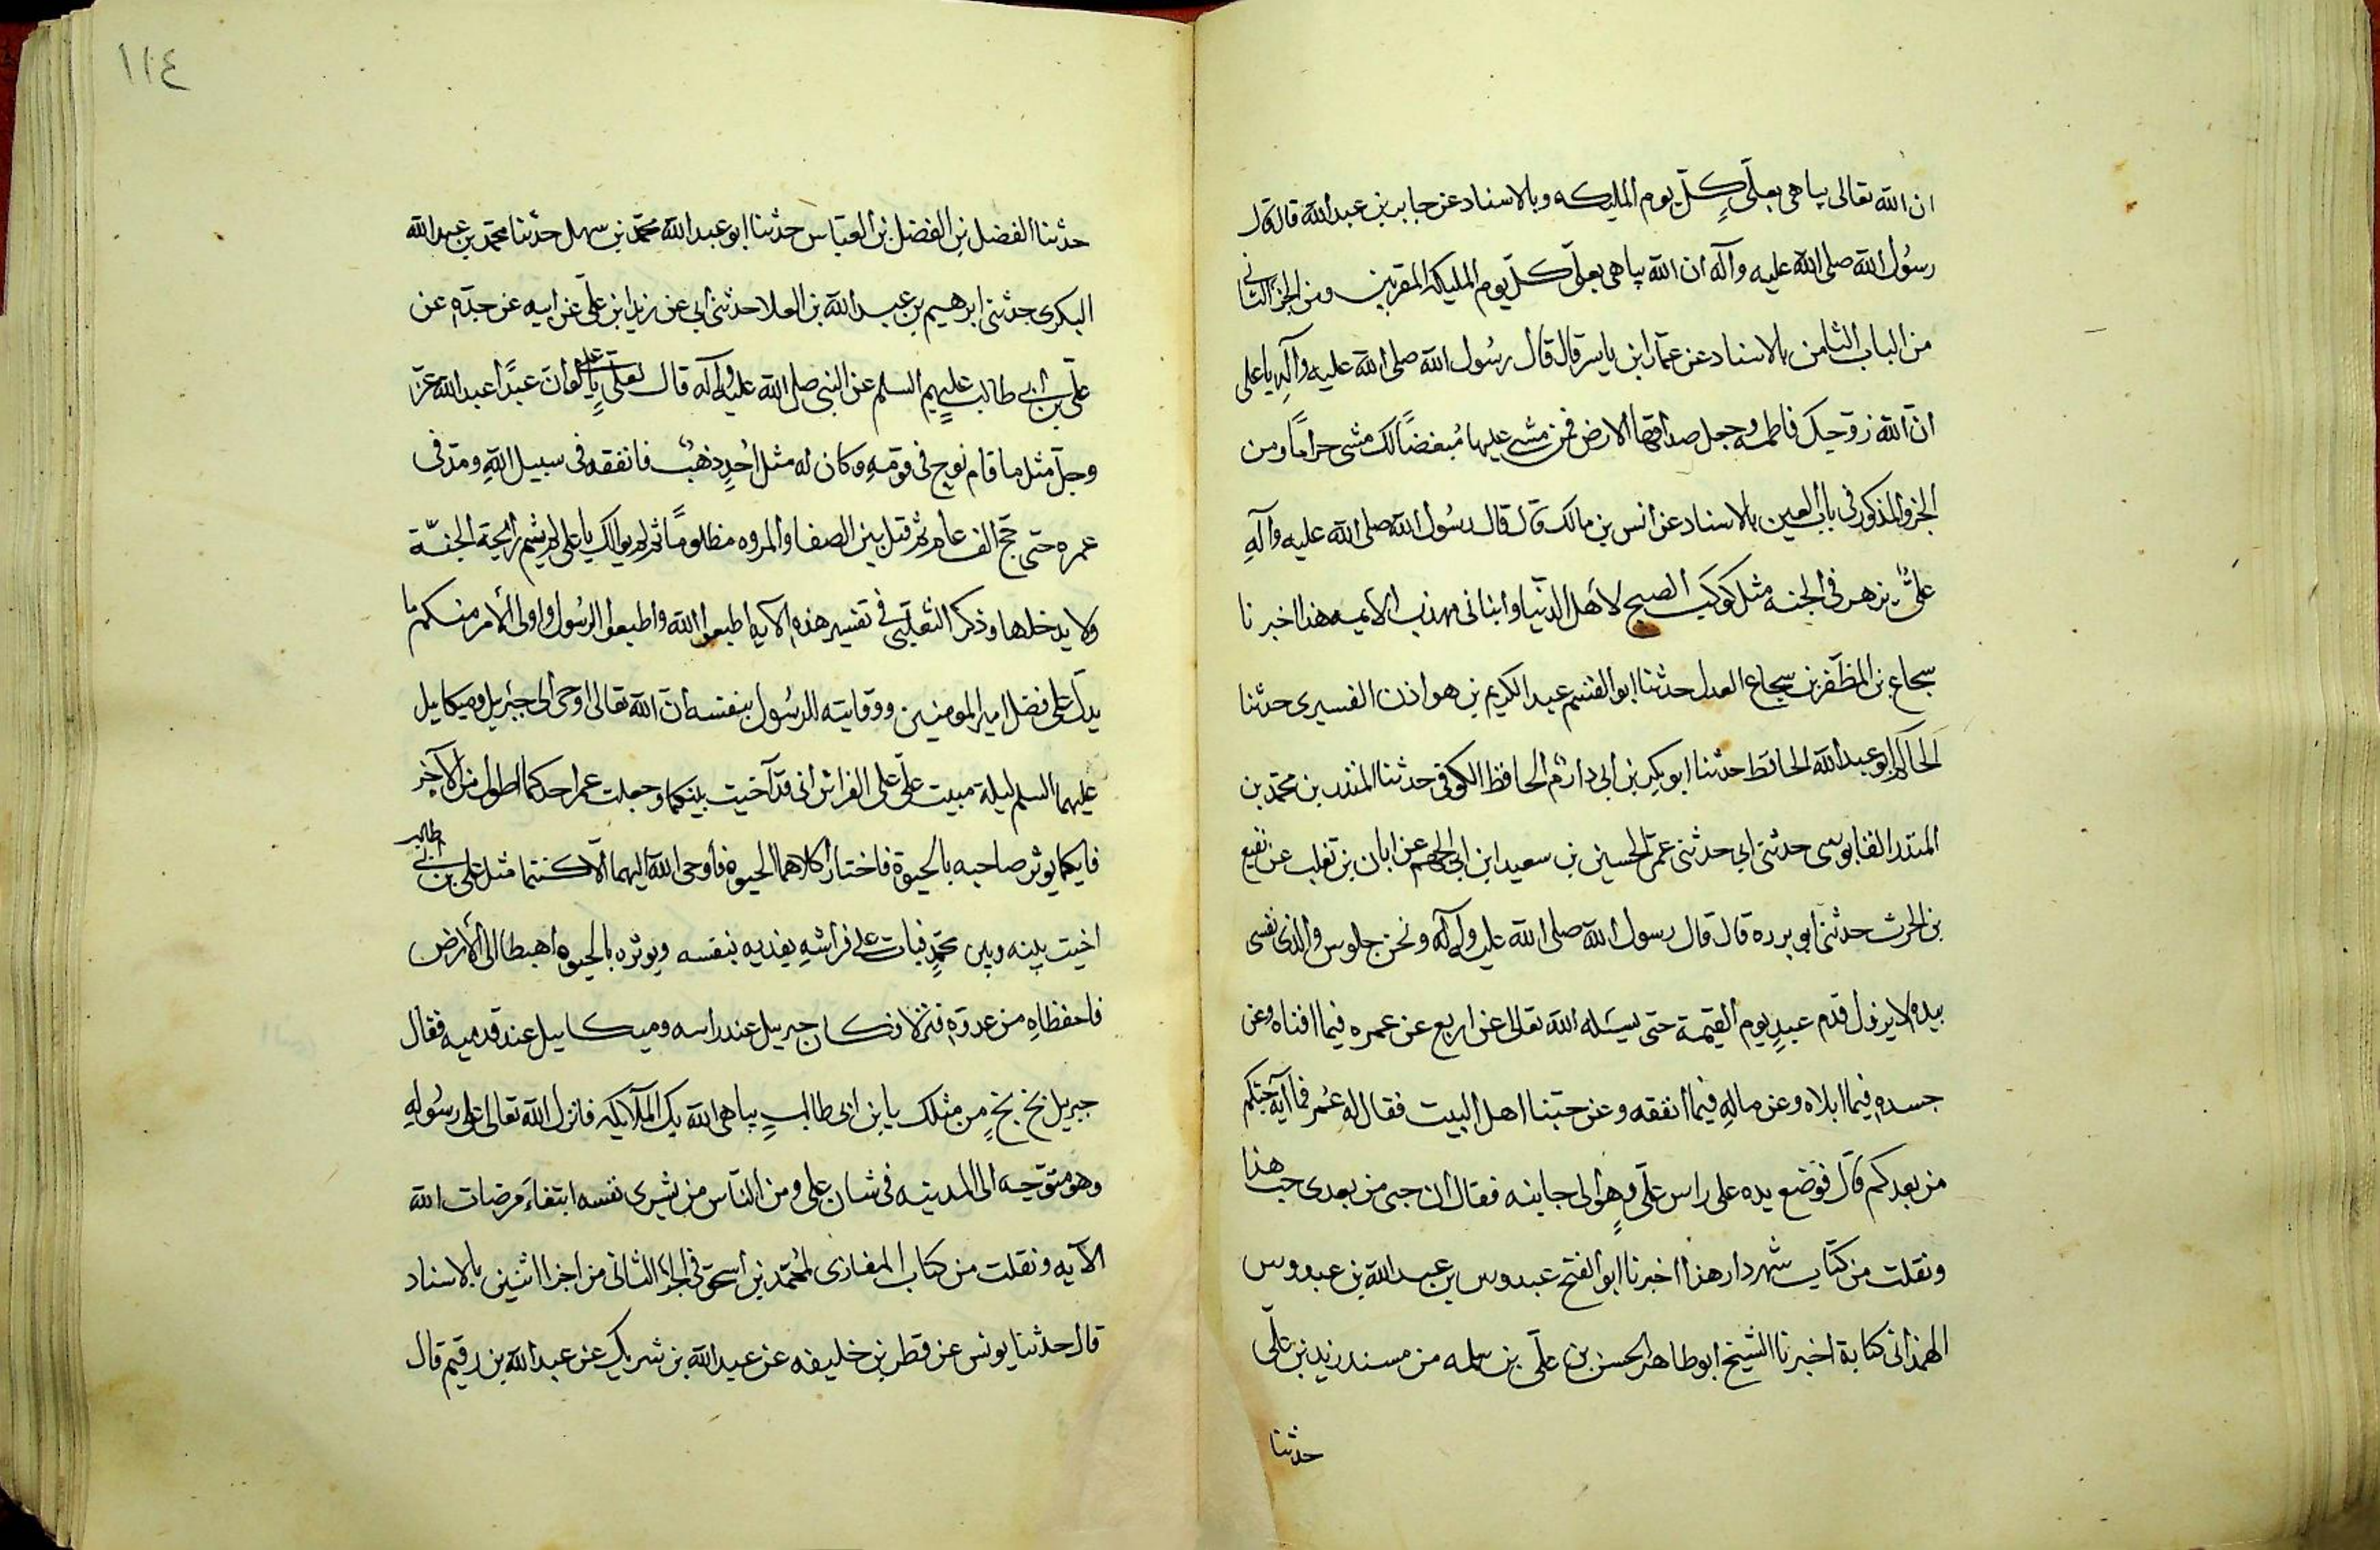 ان الله تعالى يباهى بعلىٍ كلّ يوم المليكه وبالاسناد عن جابر بن عبدالله قال قال
رسُول الله صلى الله عليه وآله ان الله يباهى بعلىّ كلّ يوم المليكة المقربين ومن الجزء الثانى
من الباب الثامن بالاسناد عن عمّار ابن ياسر قال قال رسُول الله صلى الله عليه وآلِه يا على
انّ الله زوّجك فاطمه وجعل صداقها الارض فمن مشى عليها مُبغضًا لك مشى حرامًا ومن
الجزء المذكور فى باب العين بالاسناد عن انس بن مالك قال قال رسُول الله صلى الله عليه وآلهِ
علىٌّ يزهر فى الجنه مثل كوكب الصبح لاهل الدنيا وانبانى مهذب الايمه هذا اخبرنا
سجاع بن المظفّر بن سجاع العدل حدثنا ابو القسم عبد الكريم بن هوازن القسيرى حدثنا
الحاكم ابو عبدالله الحافظ حدثنا ابو بكر بن ابى دارم الحافظ الكوفى حدثنا المنذر بن محمّد بن
المنذر القابوسى حدثنى ابى حدثنى عمّى الحسين بن سعيد ابن ابى الجهم عن ابان بن تغلب عن نفيع
بن الحرث حدثنى ابو برده قال قال رسول الله صلى الله عليه وآله ونحن جلوس والذى نفسى
بيده لا يزول قدم عبدٍ يوم القيمة حتى يسئله الله تعالى عن اربع عن عمره فيما افناه وعن
جسده فيما ابلاه وعن مالهِ فيما انفقه وعن حبّنا اهل البيت فقال له عُمر فما آية حبّكم
من بعدكم قال فوضع يده على راس علىّ وهو الى جانبه فقال ان حبى من بعدى حب هذا
ونقلت من كتاب شهردار هذا اخبرنا ابو الفتح عبدوس بن عبدالله بن عبدوس
الهمذانى كتابة اخبرنا الشيخ ابو طاهر الحسن بن علىّ بن سلمه من مسند زيد بن علىّ
حدثنا
١١٤
حدثنا الفضل بن الفضل بن العباس حدثنا ابو عبدالله محمّد بن سهل حدثنا محمّد بن عبدالله
البكرى حدثنى ابرهيم بن عبيدالله بن العلا حدثنى ابى عن زيد ابن علىّ عن ابيه عن جدّه عن
علىّ بن ابى طالب عليهم السلم عن النبى صلى الله عليه وآله قال لعلىّ يا على لو ان عبدًا عبد الله عزّ
وجلّ مثل ما قام نوح فى قومهِ وكان له مثل اُحدٍ ذهبٌ فانفقه فى سبيل اللهِ ومدّ فى
عمره حتى حجّ الف عام ثم قتل بين الصفا والمروه مظلومًا ثم لم يوالك يا على لم يشم رايحة الجنّة
ولا يدخلها وذكر الثعلبى فى تفسير هذه الآيه اطيعوا الله واطيعوا الرسُول واولى الامر منكم ما
يدلّ على فضل امير المومنين ووقايته للرسُول بنفسه انّ الله تعالى اوحى الى جبريل وميكاييل
عليهما السلم ليلة مبيت علىّ على الفراش انى قد آخيت بينكما وجعلت عمر احدكما اطول من الآخر
فايكما يوثر صاحبه بالحيوة فاختار كلاهما الحيوة فاوحى الله اليهما الّا كنتما مثل على بن ابى طالب
اخيت بينه وبين محمّدٍ فبات على فراشهِ يفديه بنفسه ويوثره بالحيوة اهبطا الى الأرض
فاحفظاهِ من عدوّه فنزلا فكان جبريل عند راسه وميكاييل عند قدميه فقال
جبريل بخ بخٍ من مثلك يا بن ابى طالبٍ يباهى الله بك الملآئكه فانزل الله تعالى على رسُولهِ
وهو متوجّه الى المدينه فى شان على ومن النّاس من يشرى نفسه ابتغاءَ مرضات الله
الآيه ونقلت من كتاب المغازى لمُحمّد بن اسحق فى الجزء الثانى من اجزا اثنين بالاسناد
قال حدثنا يونس عن قطر بن خليفه عن عبدالله بن شريك عن عبدالله بن رقيم قال